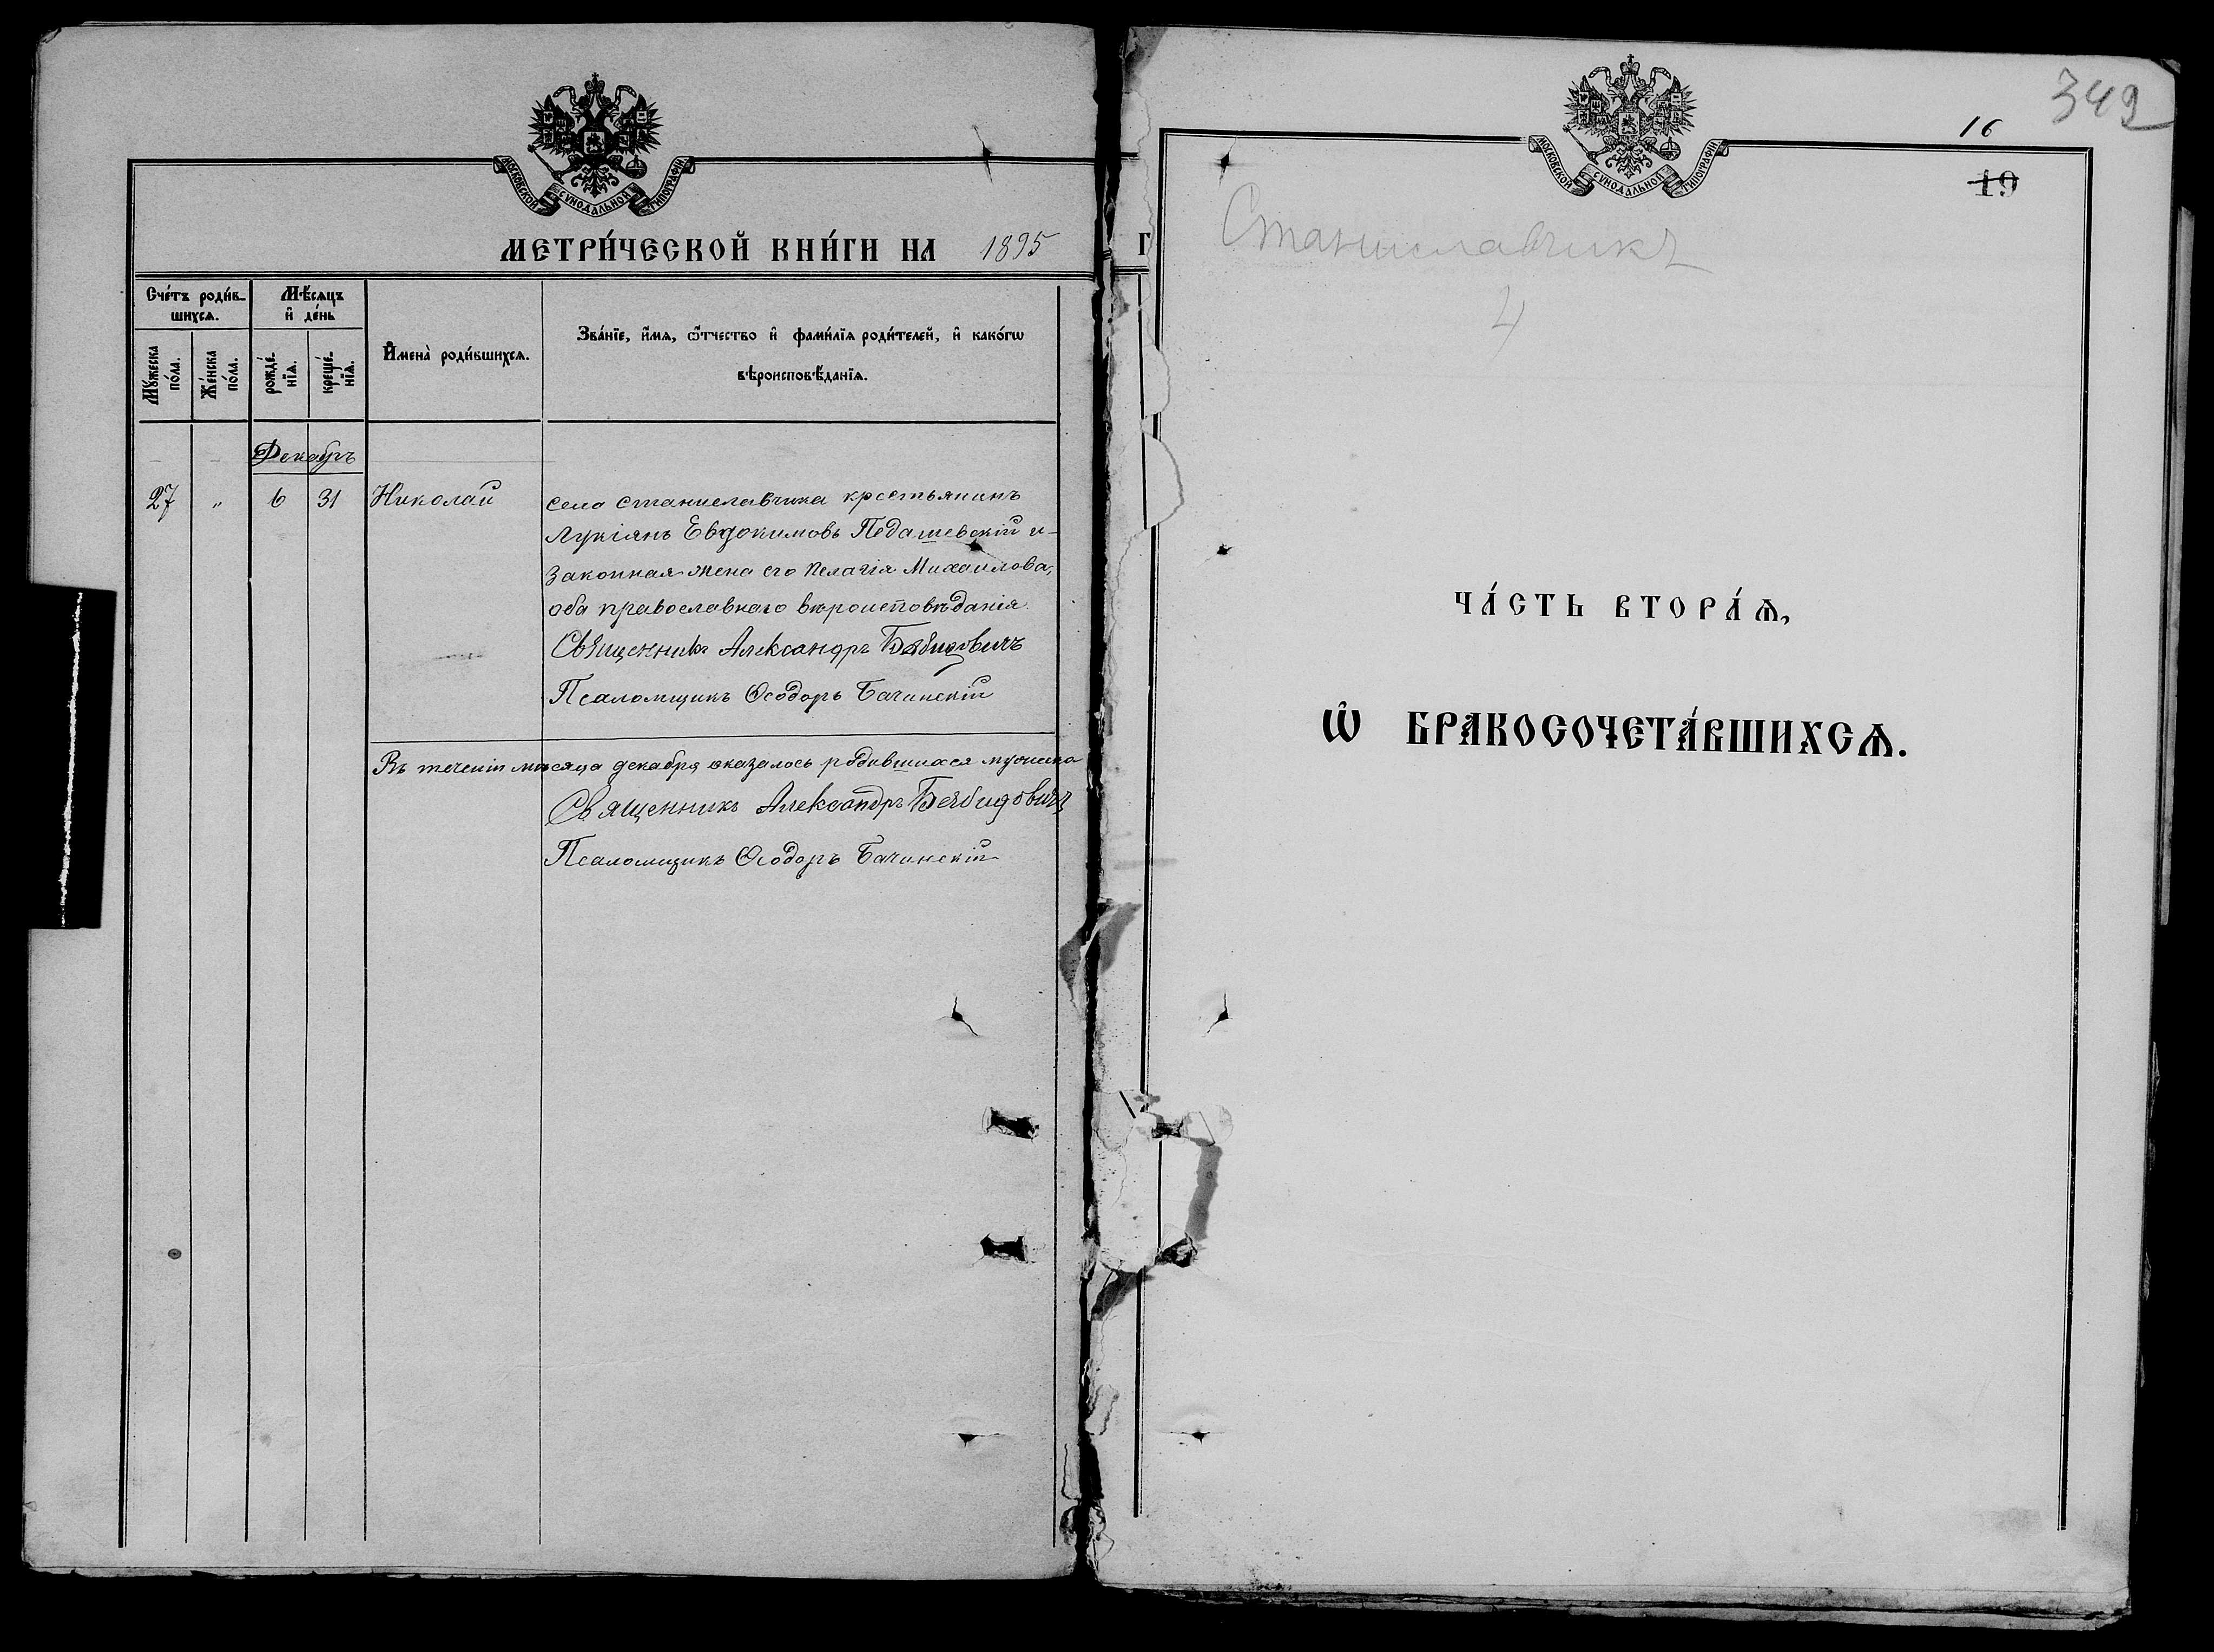 МОСКОВСКОЙ СѴНОДАЛЬНОЙ ТИПОГРАФІИ
МЕТРИ́ЧЕСКОЙ КНИ́ГИ НА 1895
Сче́тъ роди́в-
шихсѧ.
Мѣ́сѧцъ
и҆ де́нь
Мꙋ́жеска
по́ла.
Же́нска
по́ла.
рожде́-
нїѧ.
креще́-
нїѧ.
И҆мена̀ роди́вшихсѧ.
Зва́нїе, и҆́мѧ, ѻ҆́тчество и҆ фами́лїѧ роди́телей, и҆ како́гѡ
вѣроисповѣ́данїѧ.
Декабрь
27 „ 6 31 Николай
села Станиславчика крестьянинъ
Лукіянъ Евдокимовъ Педашевскій и
законная жена его Пелагія Михаилова,
оба православнаго вѣроисповѣданія.
Священникъ Александръ
Псаломщикъ Ѳеодоръ Бачинскій
Въ теченіи мѣсяца декабря оказалось родившихся мужеска
Священникъ Александръ
Псаломщикъ Ѳеодоръ Бачинскій
Г
349
16
19
МОСКОВСКОЙ СѴНОДАЛЬНОЙ ТИПОГРАФІИ
Станиславчикъ
4
ЧА́СТЬ ВТОРА́Ѧ,
Ѽ БРАКОСОЧЕТА́ВШИХСѦ.